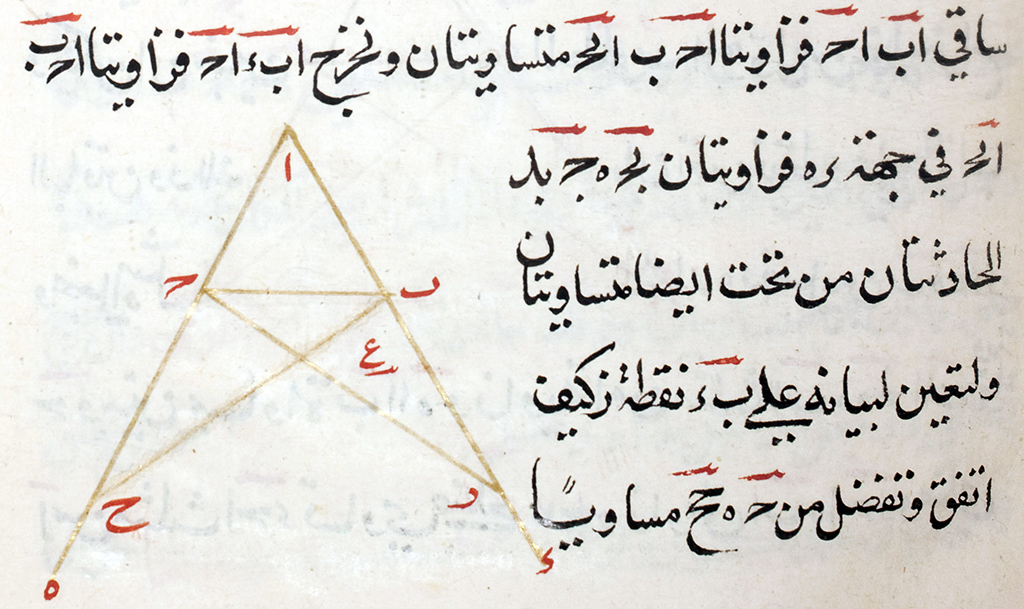 ساقي اب اح فزاويتا احب ابح متساويتان ونخرج ابء احه فزاويتا احب
ابح في جهة ءه فزاويتان بحه حبد
الحادثتان من تحت ايضا متساويتان
ولنعين لبيانه علي بء نقطة ز كيف
اتفق ونفضل من حه حح مساويا
ا
ح
ب
ع
ح
د
ء
ه